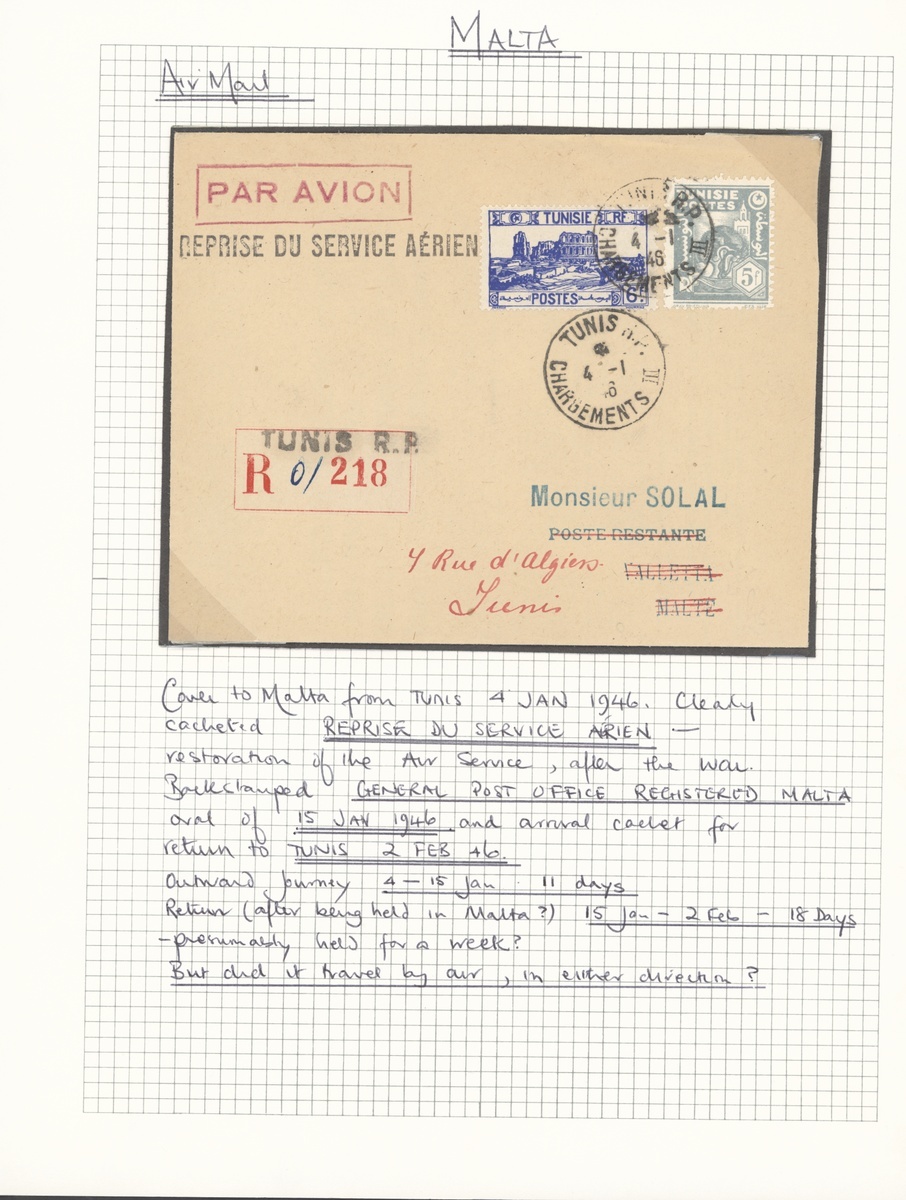 MALTA
Air Mail
PAR AVION
REPRISE DU SERVICE AÉRIEN
TUNISIE RF
POSTES
6F
TUNISIE
POSTES
5F
TUNIS R.P.
4 -1
46
CHARGEMENTS III
TUNIS R.P.
4 -1
6
CHARGEMENTS III
TUNIS R.P.
R 0/218
Monsieur SOLAL
POSTE RESTANTE
4 Rue d'Algiers.
VALLETTA
Tunis
MALTE
Cover to Malta from TUNIS 4 JAN 1946. Clearly
cacheted REPRISE DU SERVICE AÉRIEN —
restoration of the Air Service, after the war.
Backstamped GENERAL POST OFFICE REGISTERED MALTA
oval of 15 JAN 1946 and arrival cachet for
return to TUNIS 2 FEB 46.
Outward Journey 4 – 15 Jan . 11 days
Return (after being held in Malta?) 15 Jan – 2 Feb – 18 Days
– presumably held for a week?
But did it travel by air, in either direction?